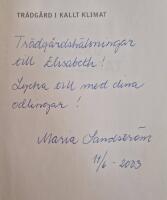 TRÄDGÅRD I KALLT KLIMAT
Trädgårdshälsningar
till Elisabeth!
Lycka till med dina
odlingar!
Maria Sandström
11/6 - 2023